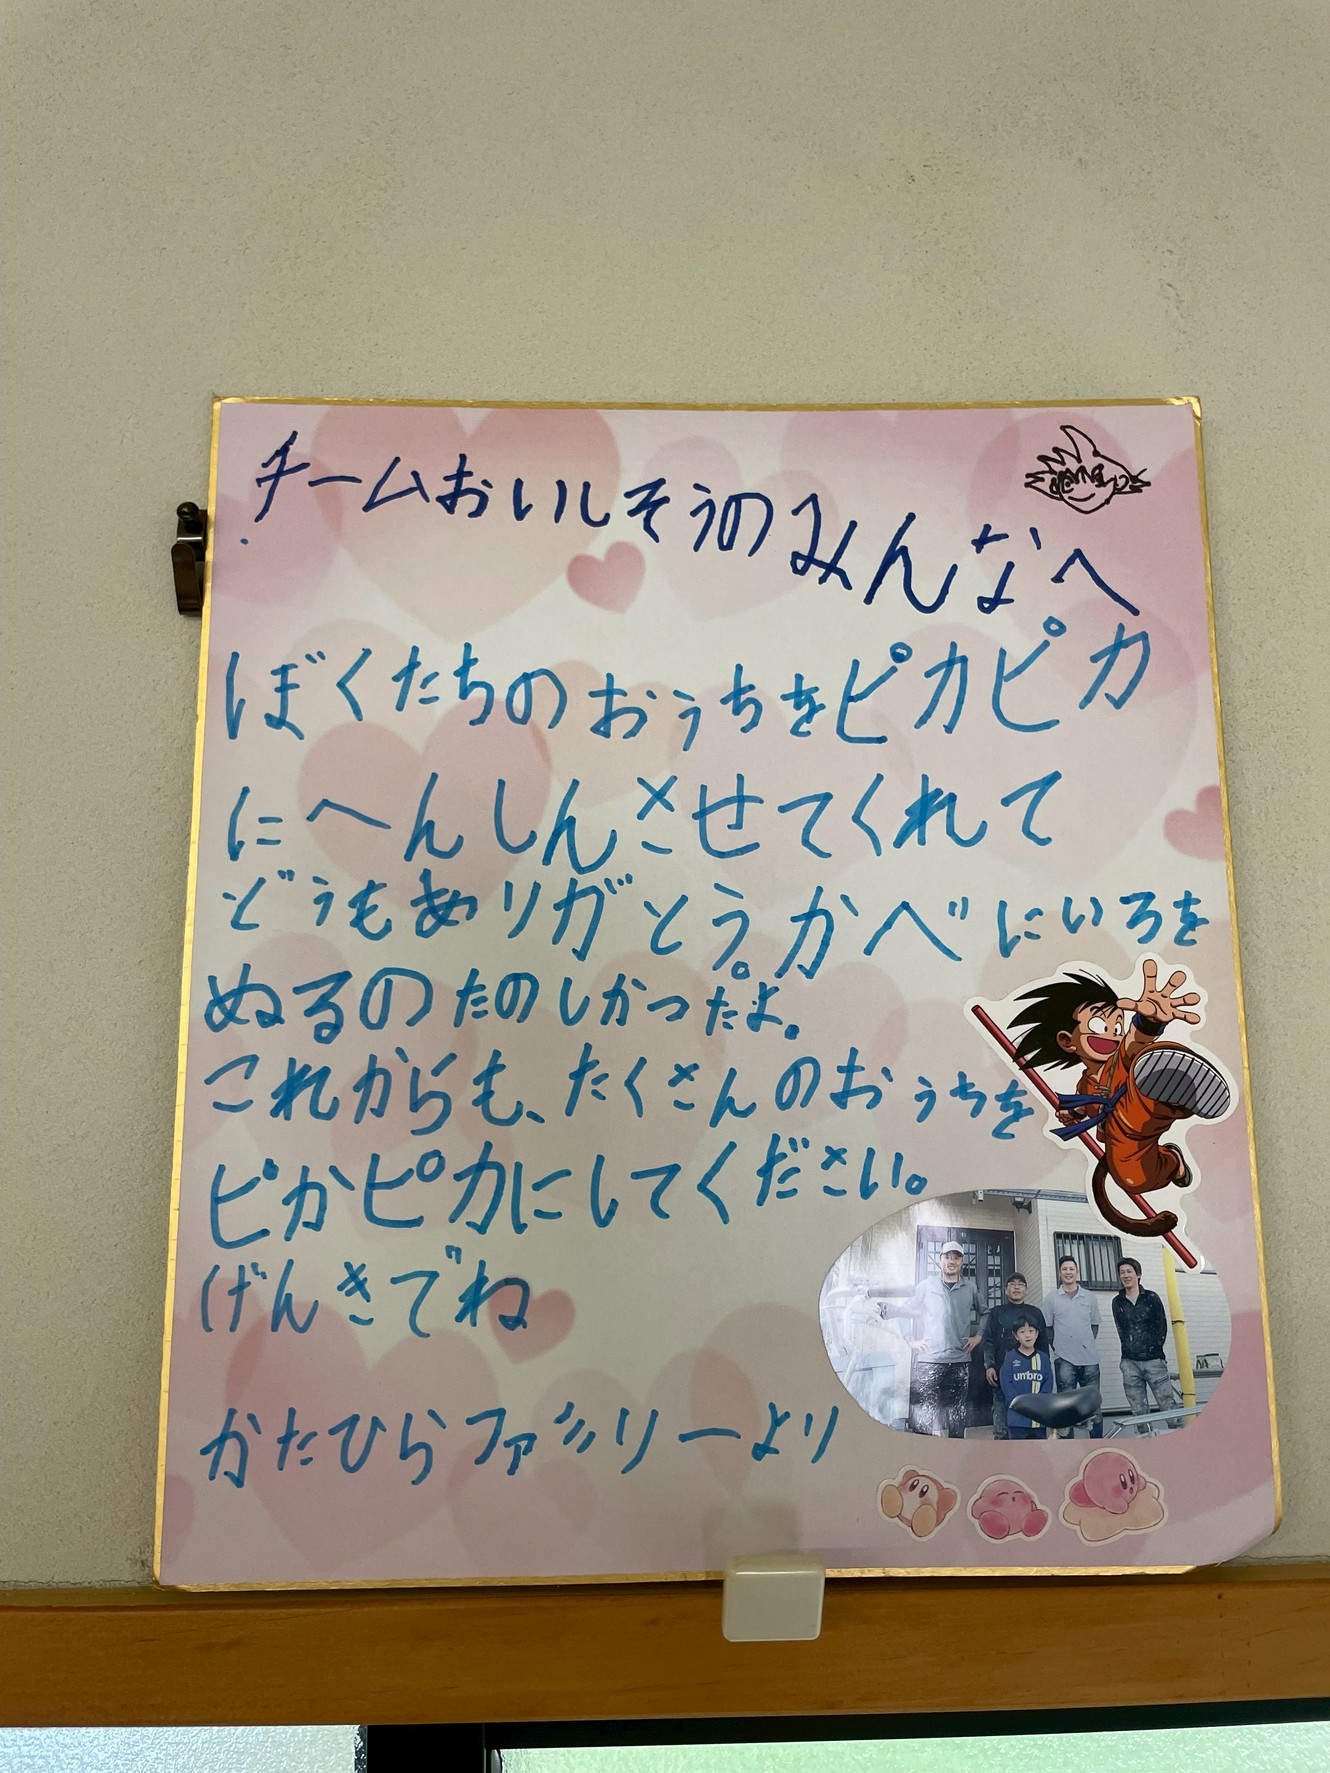 チームおいしそうのみんなへ
ぼくたちのおうちをピカピカ
にへんしんさせてくれて
どうもありガとう。かべにいろを
ぬるのたのしかったよ。
これからも、たくさんのおうちを
ピカピカにしてください。
げんきでね
かたひらファミリーより
umbro